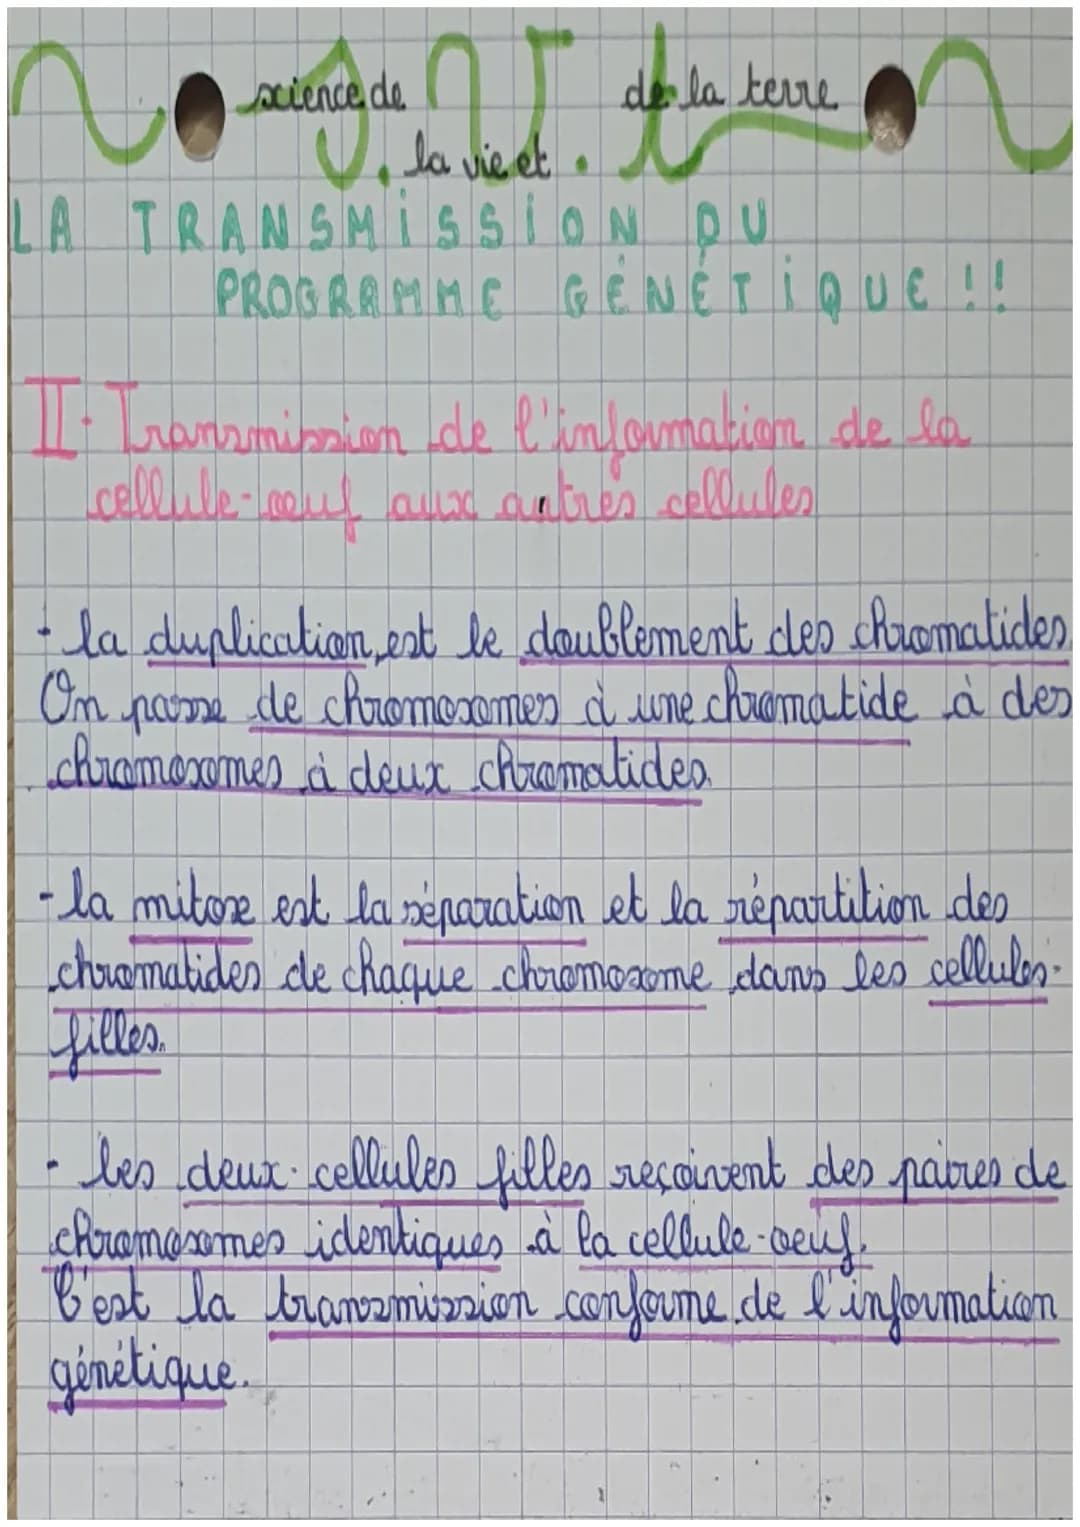 science de
S.V.t
de la terre
la vie et
LA TRANSMISSION DU
PROGRAMME GÉNÉTIQUE !!
II. Transmission de l'information de la
cellule-oeuf aux autres cellules
- la duplication, est le doublement des chromatides.
On passe de chromosomes à une chromatide à des
chromosomes à deux chromatides.
- la mitose est la séparation et la répartition des
chromatides de chaque chromosome dans les cellules-
filles.
- les deux cellules filles reçoivent des paires de
chromosomes identiques à la cellule-oeuf.
C'est la transmission conforme de l'information
génétique.